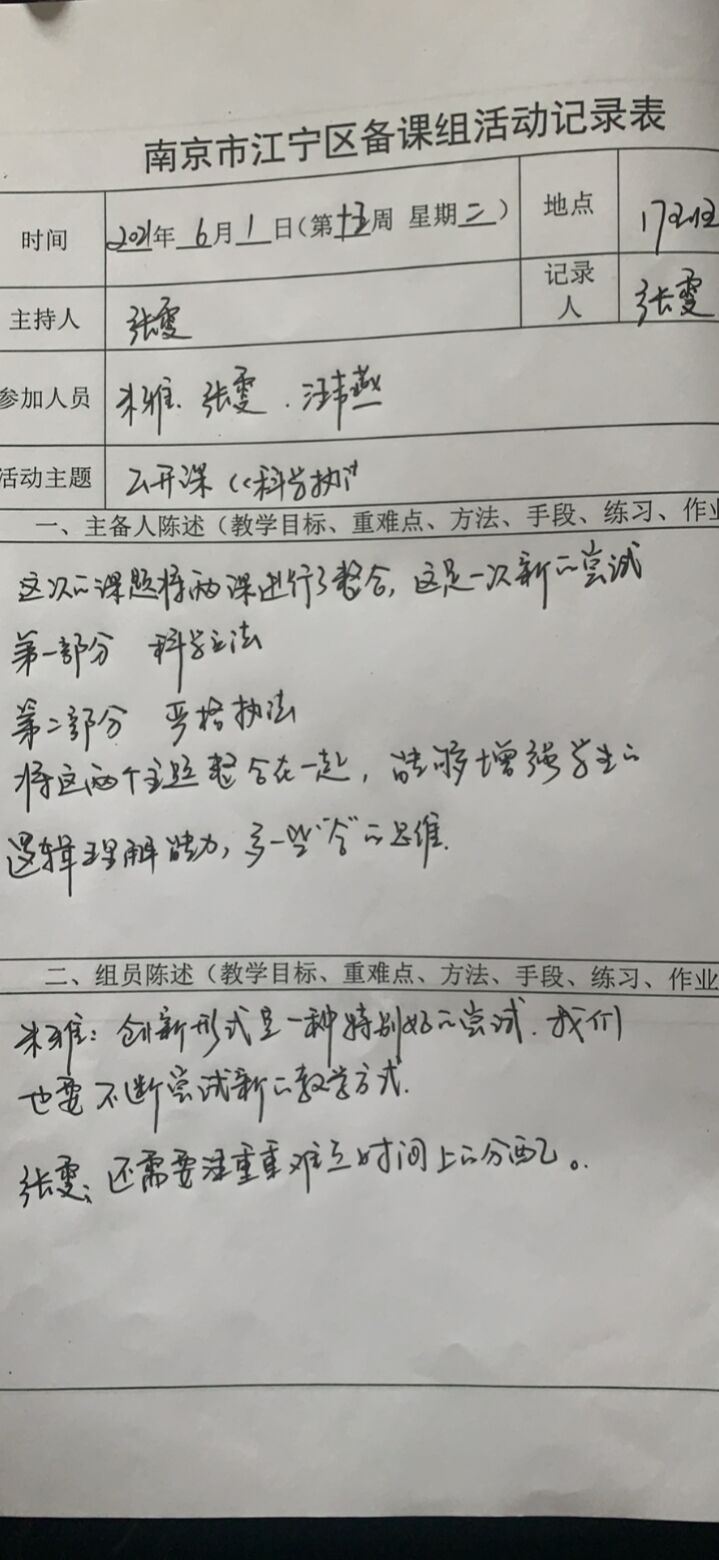 南京市江宁区备课组活动记录表
时间 2021年 6月 1日(第十五周 星期二) 地点 17班
主持人 张雯 记录人 张雯
参加人员 朱雅. 张雯. 汪韦燕
活动主题 公开课《科学执
一、主备人陈述（教学目标、重难点、方法、手段、练习、作业
这次的课题将两课进行了整合, 这是一次新的尝试
第一部分 科学立法
第二部分 严格执法
将这两个主题整合在一起, 能够增强学生的
逻辑理解能力, 多一些“合”的思维.
二、组员陈述（教学目标、重难点、方法、手段、练习、作业
朱雅: 创新形式是一种特别好的尝试. 我们
也要不断尝试新的教学方式.
张雯: 还需要注重重难点时间上的分配。